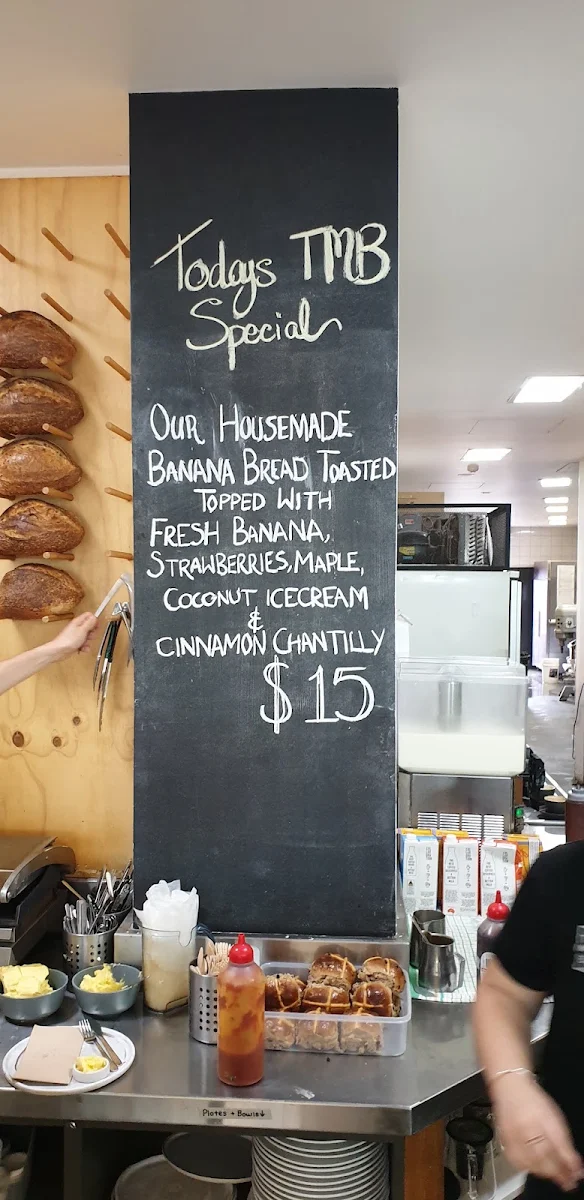 Todays TMB
Special
OUR HOUSEMADE
BANANA BREAD TOASTED
TOPPED WITH
FRESH BANANA,
STRAWBERRIES, MAPLE,
COCONUT ICECREAM
&
CINNAMON CHANTILLY
$15
Plates + Bowls